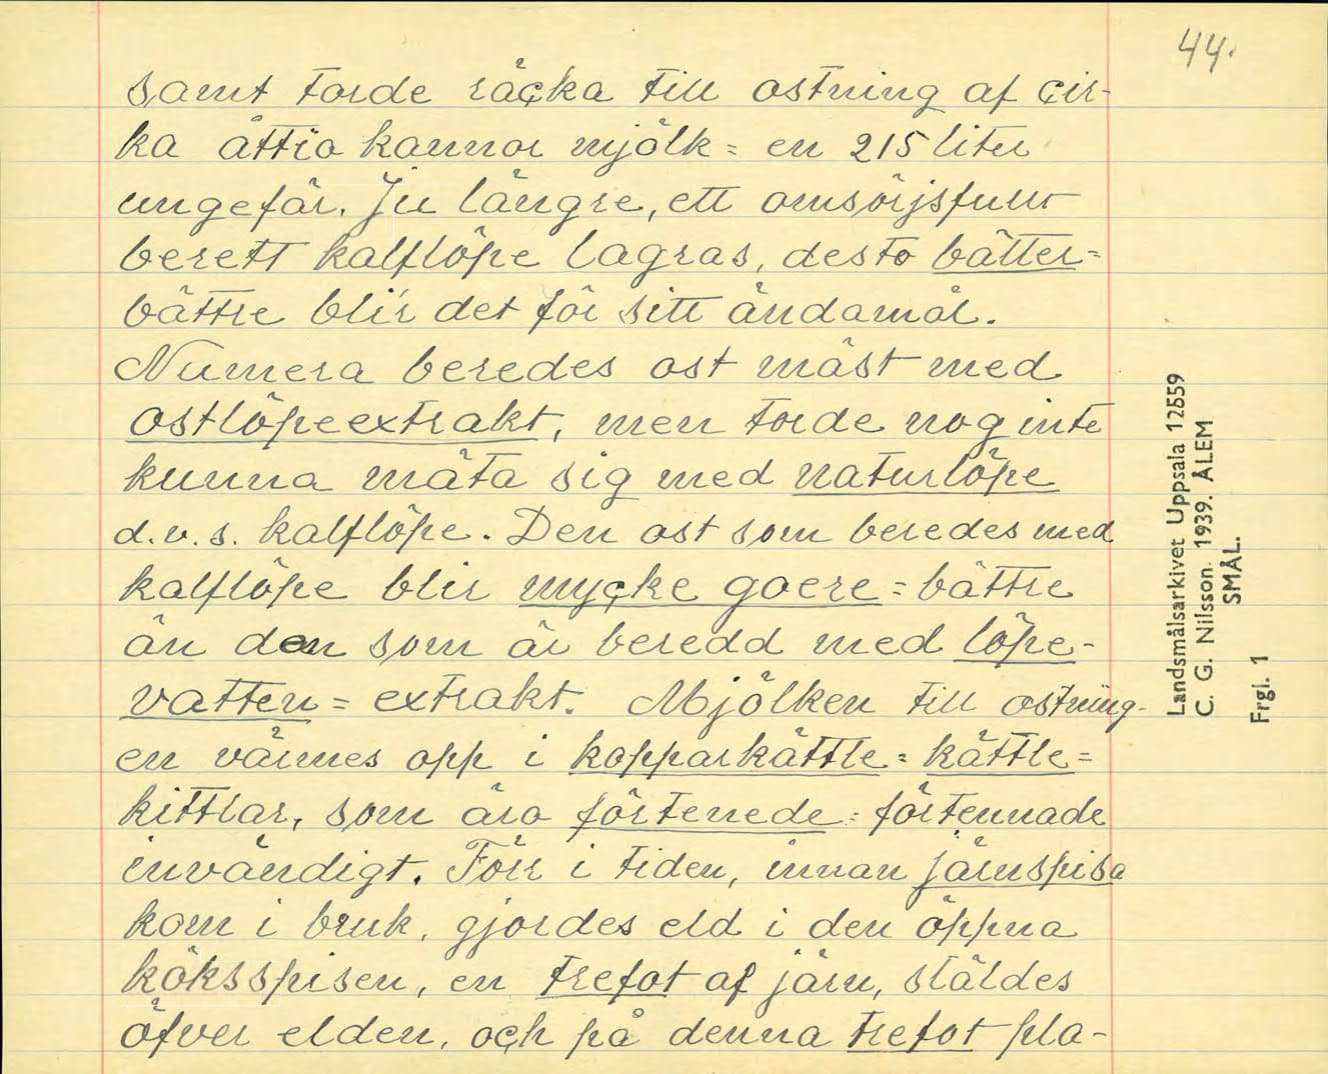 44.
samt torde räcka till ostning af cir-
ka åttio kannor mjölk = en 215 liter
ungefär. Ju längre, ett omsörjsfullt
berett kalflöpe lagras, desto bätter=
bättre blir det för sitt ändamål.
Numera beredes ost mäst med
ostlöpeextrakt, men torde nog inte
kunna mäta sig med naturlöpe
d.v.s. kalflöpe. Den ost som beredes med
kalflöpe blir mycke goere = bättre
än den som är beredd med löpe-
vatten = extrakt. Mjölken till ostning-
en värmes opp i kopparkättle = kättle =
kittlar, som äro förtenede = förtennade
invändigt. Förr i tiden, innan järnspisa
kom i bruk, gjordes eld i den öppna
köksspisen, en trefot af järn, stäldes
öfver elden, och på denna trefot pla-
Landsmålsarkivet Uppsala 12559
C. G. Nilsson. 1939. ÅLEM
SMÅL.
Frgl. 1